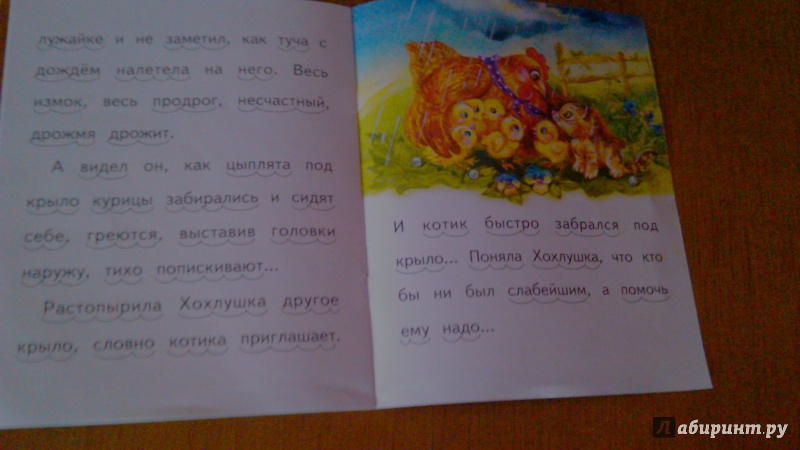 лужайке и не заметил, как туча с
дождём налетела на него. Весь
измок, весь продрог, несчастный,
дрожмя дрожит.
А видел он, как цыплята под
крыло курицы забирались и сидят
себе, греются, выставив головки
наружу, тихо попискивают...
Растопырила Хохлушка другое
крыло, словно котика приглашает.
И котик быстро забрался под
крыло... Поняла Хохлушка, что кто
бы ни был слабейшим, а помочь
ему надо...
Лабиринт.ру